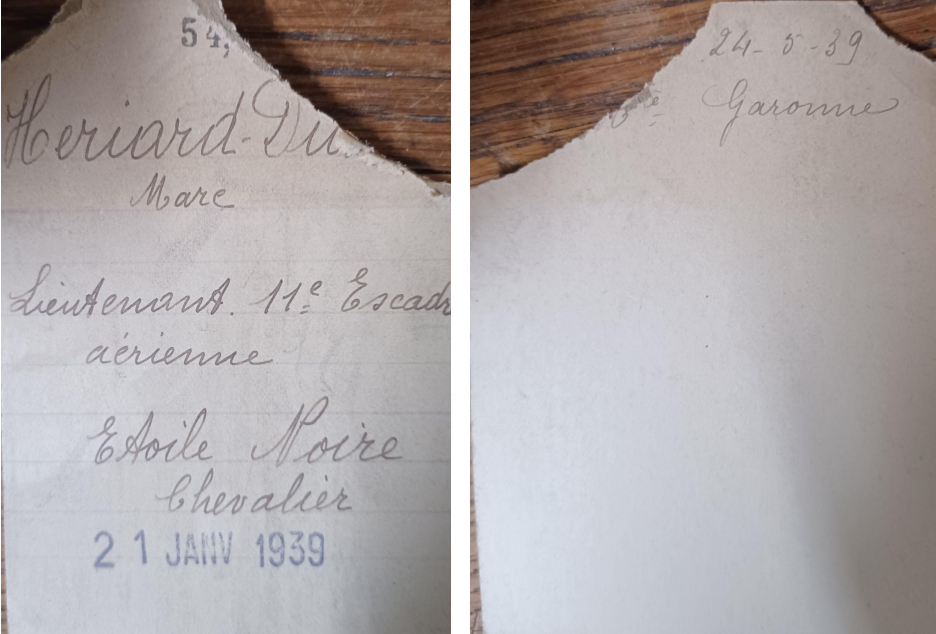 54,
Heriard-Du
Marc
Lieutenant. 11e Escadr
aérienne
Etoile Noire
Chevalier
21 JANV 1939
24-5-39
Garonne